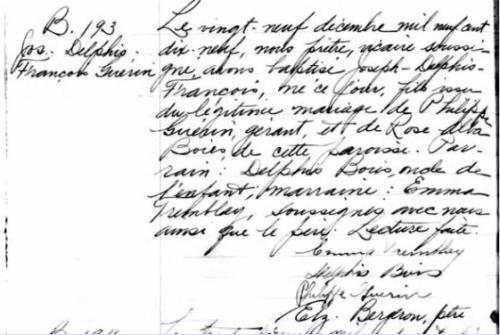 B. 193
Jos. Delphis
François Guérin
Le vingt-neuf décembre mil neuf cent
dix-neuf, nous prêtre, vicaire soussi-
gné, avons baptisé Joseph-Delphis-
François, né ce jour, fils issu
du légitime mariage de Philippe
Guérin, gérant, et de Rose Alba
Bois, de cette paroisse. Par-
rain: Delphis Bois, oncle de
l'enfant, marraine: Emma
Tremblay, soussignés avec nous
ainsi que le père. Lecture faite.
Emma Tremblay
Delphis Bois
Philippe Guerin
Elz. Bergeron, ptre